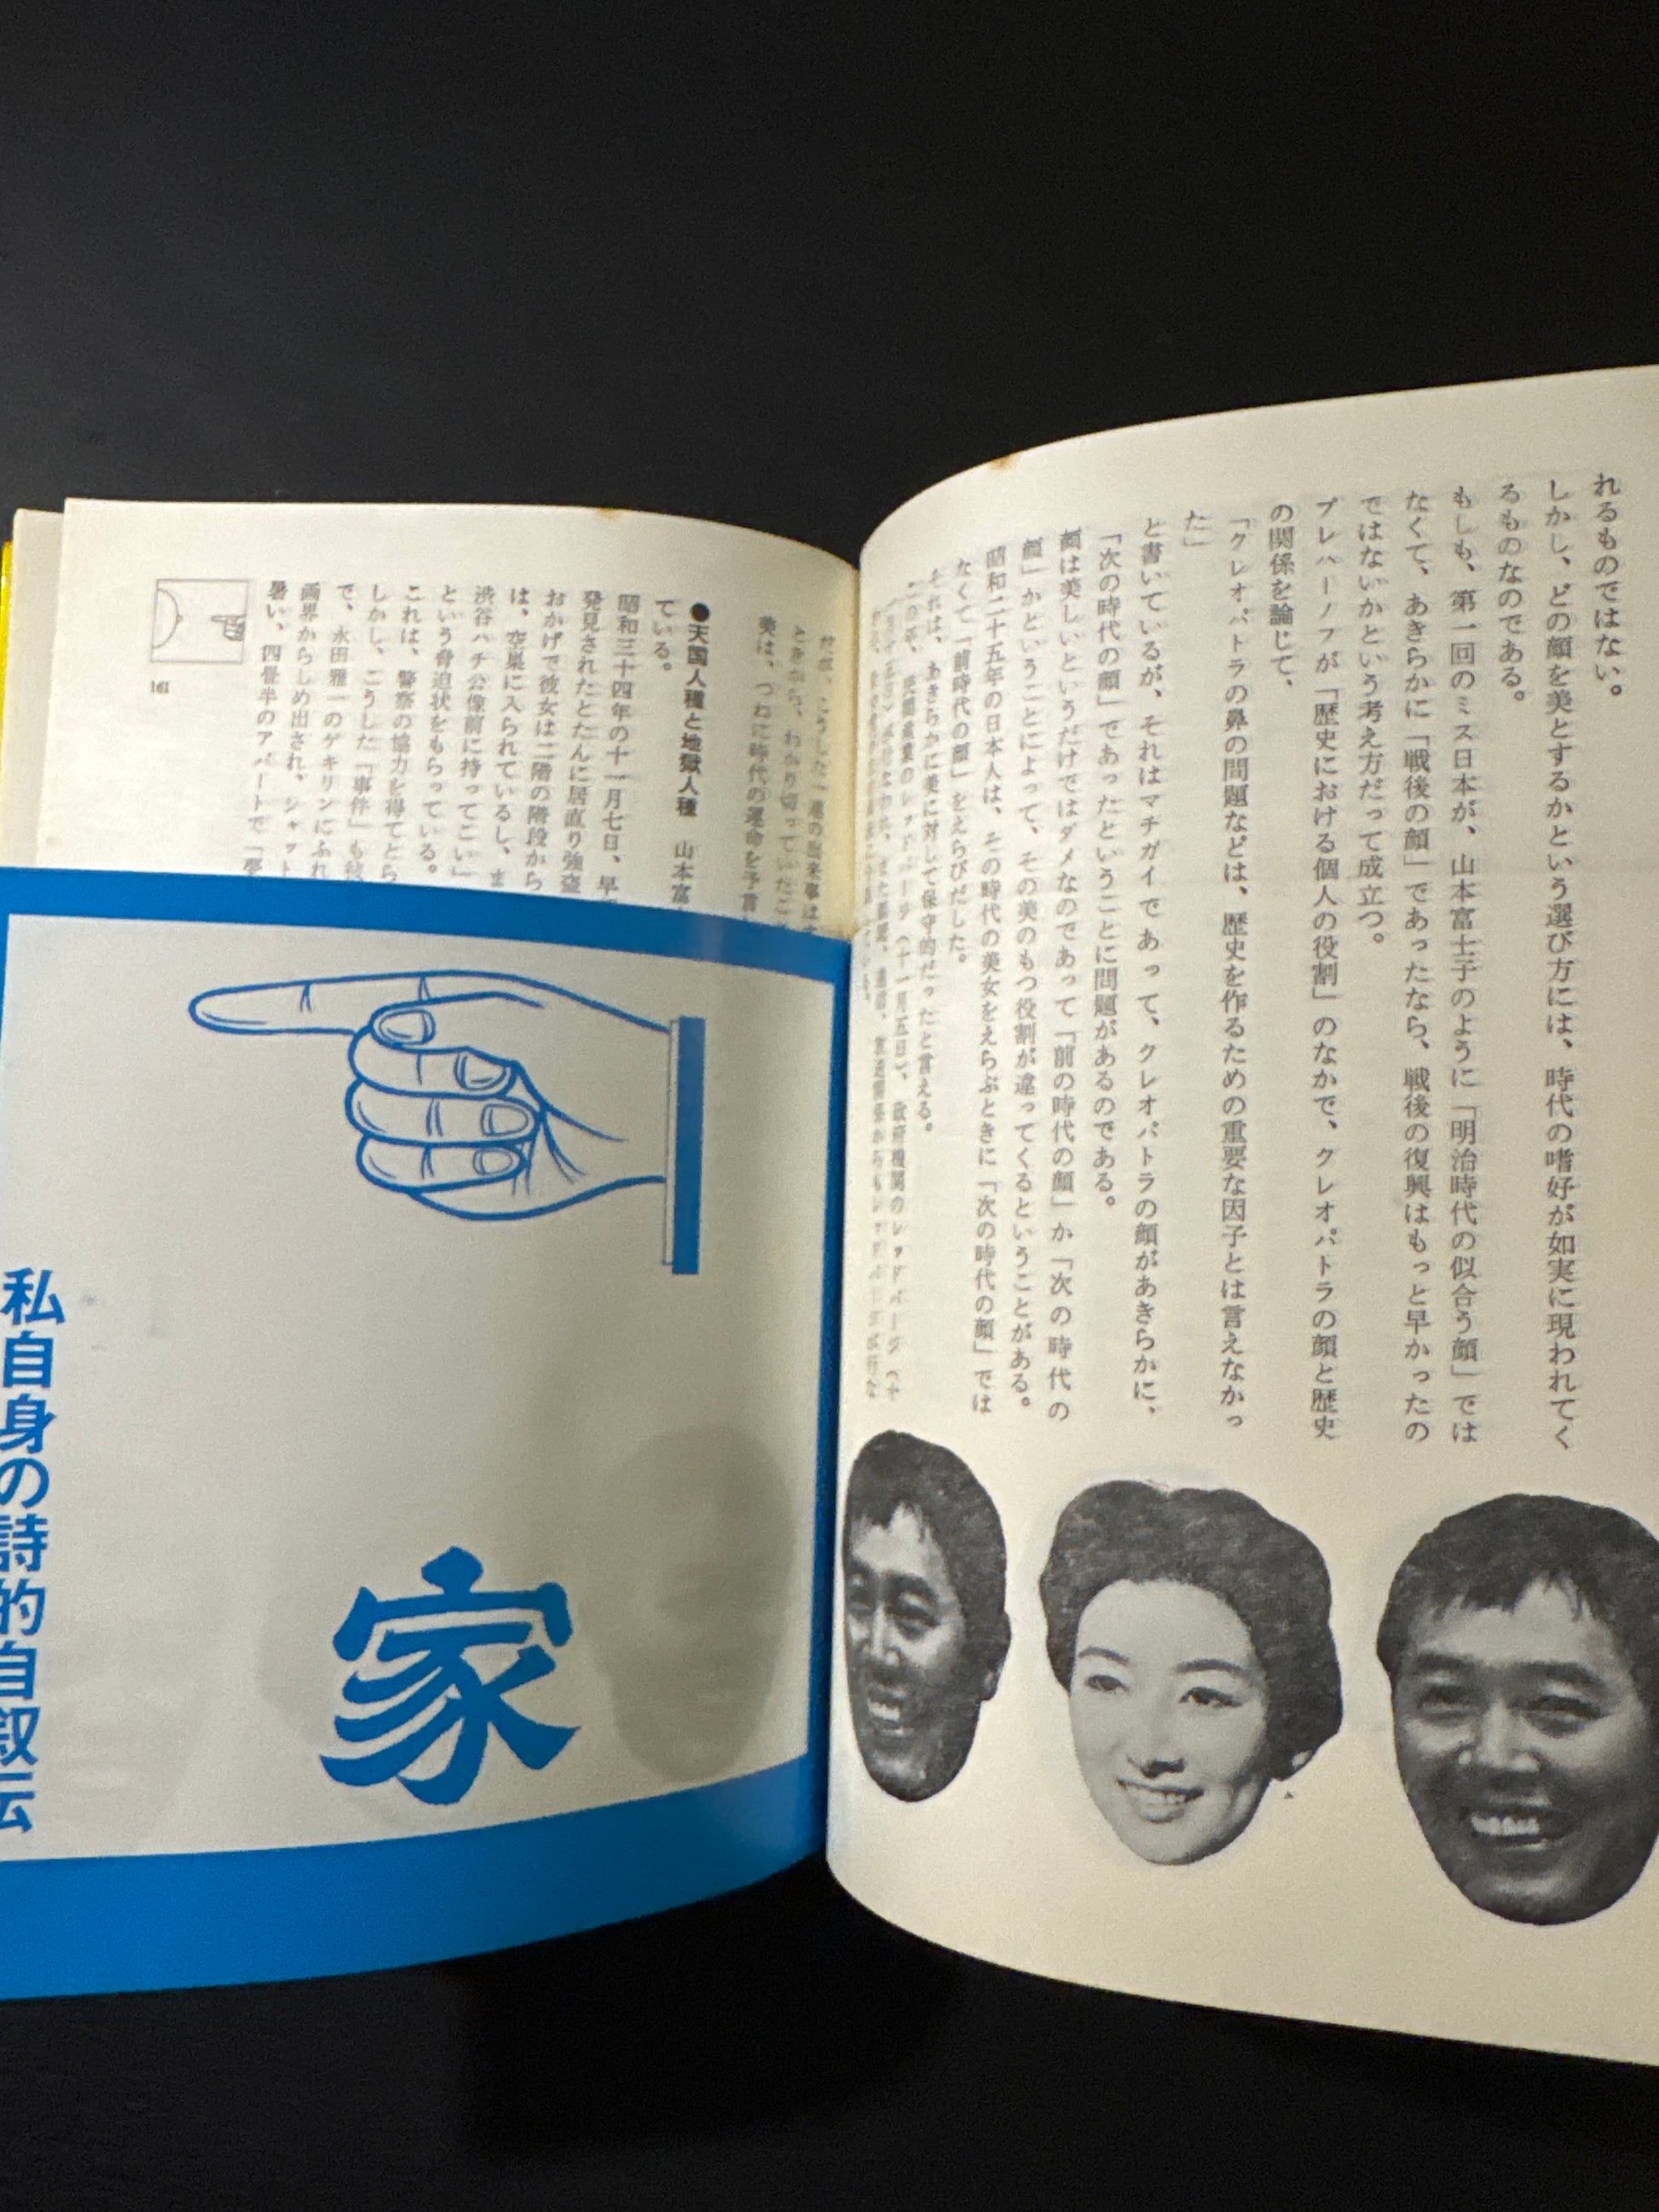 れるものではない。
しかし、どの顔を美とするかという選び方には、時代の嗜好が如実に現われてく
るものなのである。
もしも、第一回のミス日本が、山本富士子のように「明治時代の似合う顔」では
なくて、あきらかに「戦後の顔」であったなら、戦後の復興はもっと早かったの
ではないかという考え方だって成立つ。
プレハーノフが「歴史における個人の役割」のなかで、クレオパトラの顔と歴史
の関係を論じて、
「クレオパトラの鼻の問題などは、歴史を作るための重要な因子とは言えなかっ
た」
と書いているが、それはマチガイであって、クレオパトラの顔があきらかに、
「次の時代の顔」であったということに問題があるのである。
顔は美しいというだけではダメなのであって「前の時代の顔」か「次の時代の
顔」かということによって、その美のもつ役割が違ってくるということがある。
昭和二十五年の日本人は、その時代の美女をえらぶときに「次の時代の顔」では
なくて「前時代の顔」をえらびだした。
それは、あきらかに美に対して保守的だったと言える。
この年、民間産業のレッドパージ（十一月五日）、政府機関のレッドパージ（十
だが、こうした一連の出来事は
ときから、わかり切っていたこ
美は、つねに時代の運命を予言
●天国人種と地獄人種　山本富
ている。
昭和三十四年の十一月七日、早
発見されたとたんに居直り強盗
おかげで彼女は二階の階段から
は、空巣に入られているし、ま
渋谷ハチ公像前に持ってこい」
という脅迫状をもらっている。
これは、警察の協力を得てとら
しかし、こうした「事件」も
で、永田雅一のゲキリンにふれ
画界からしめ出され、ジャット
暑い、四畳半のアパートで「
161
家
私自身の詩的自叙伝